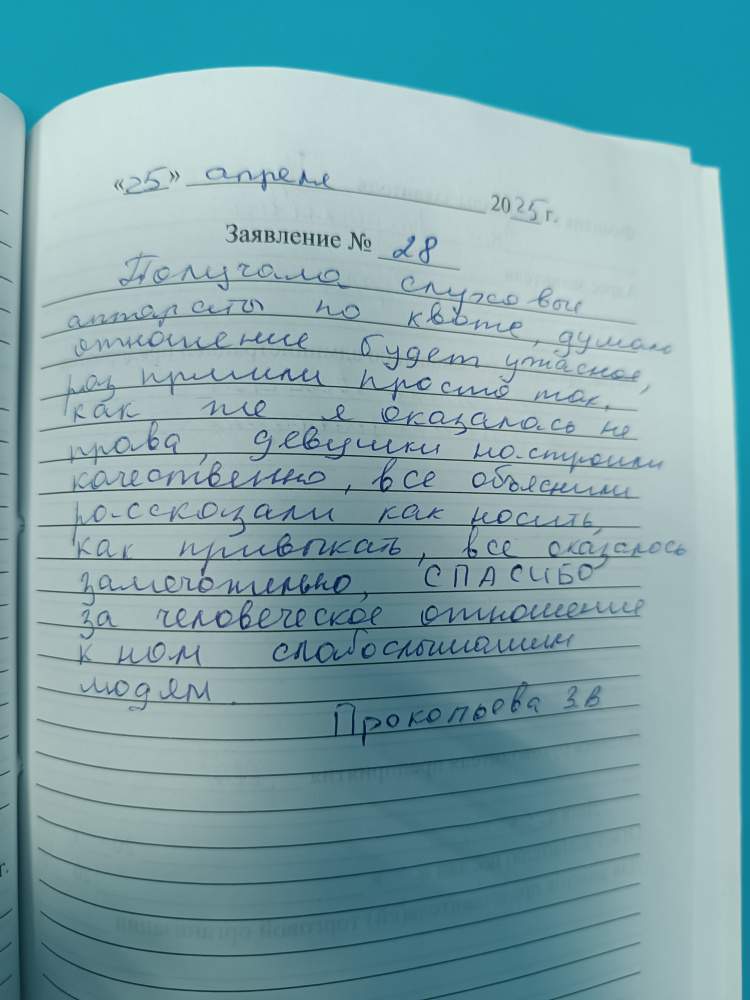 «25» апреля 2025 г.
Заявление № 28
Получала слуховые
аппараты по квоте, думала
отношение будет ужасное,
раз пришли просто так,
как же я оказалась не
права, девушки настроили
качественно, все объяснили
рассказали как носить,
как привыкать, все оказалось
замечательно, СПАСИБО
за человеческое отношение
к нам слабослышашим
людям.
Прокопьева З В